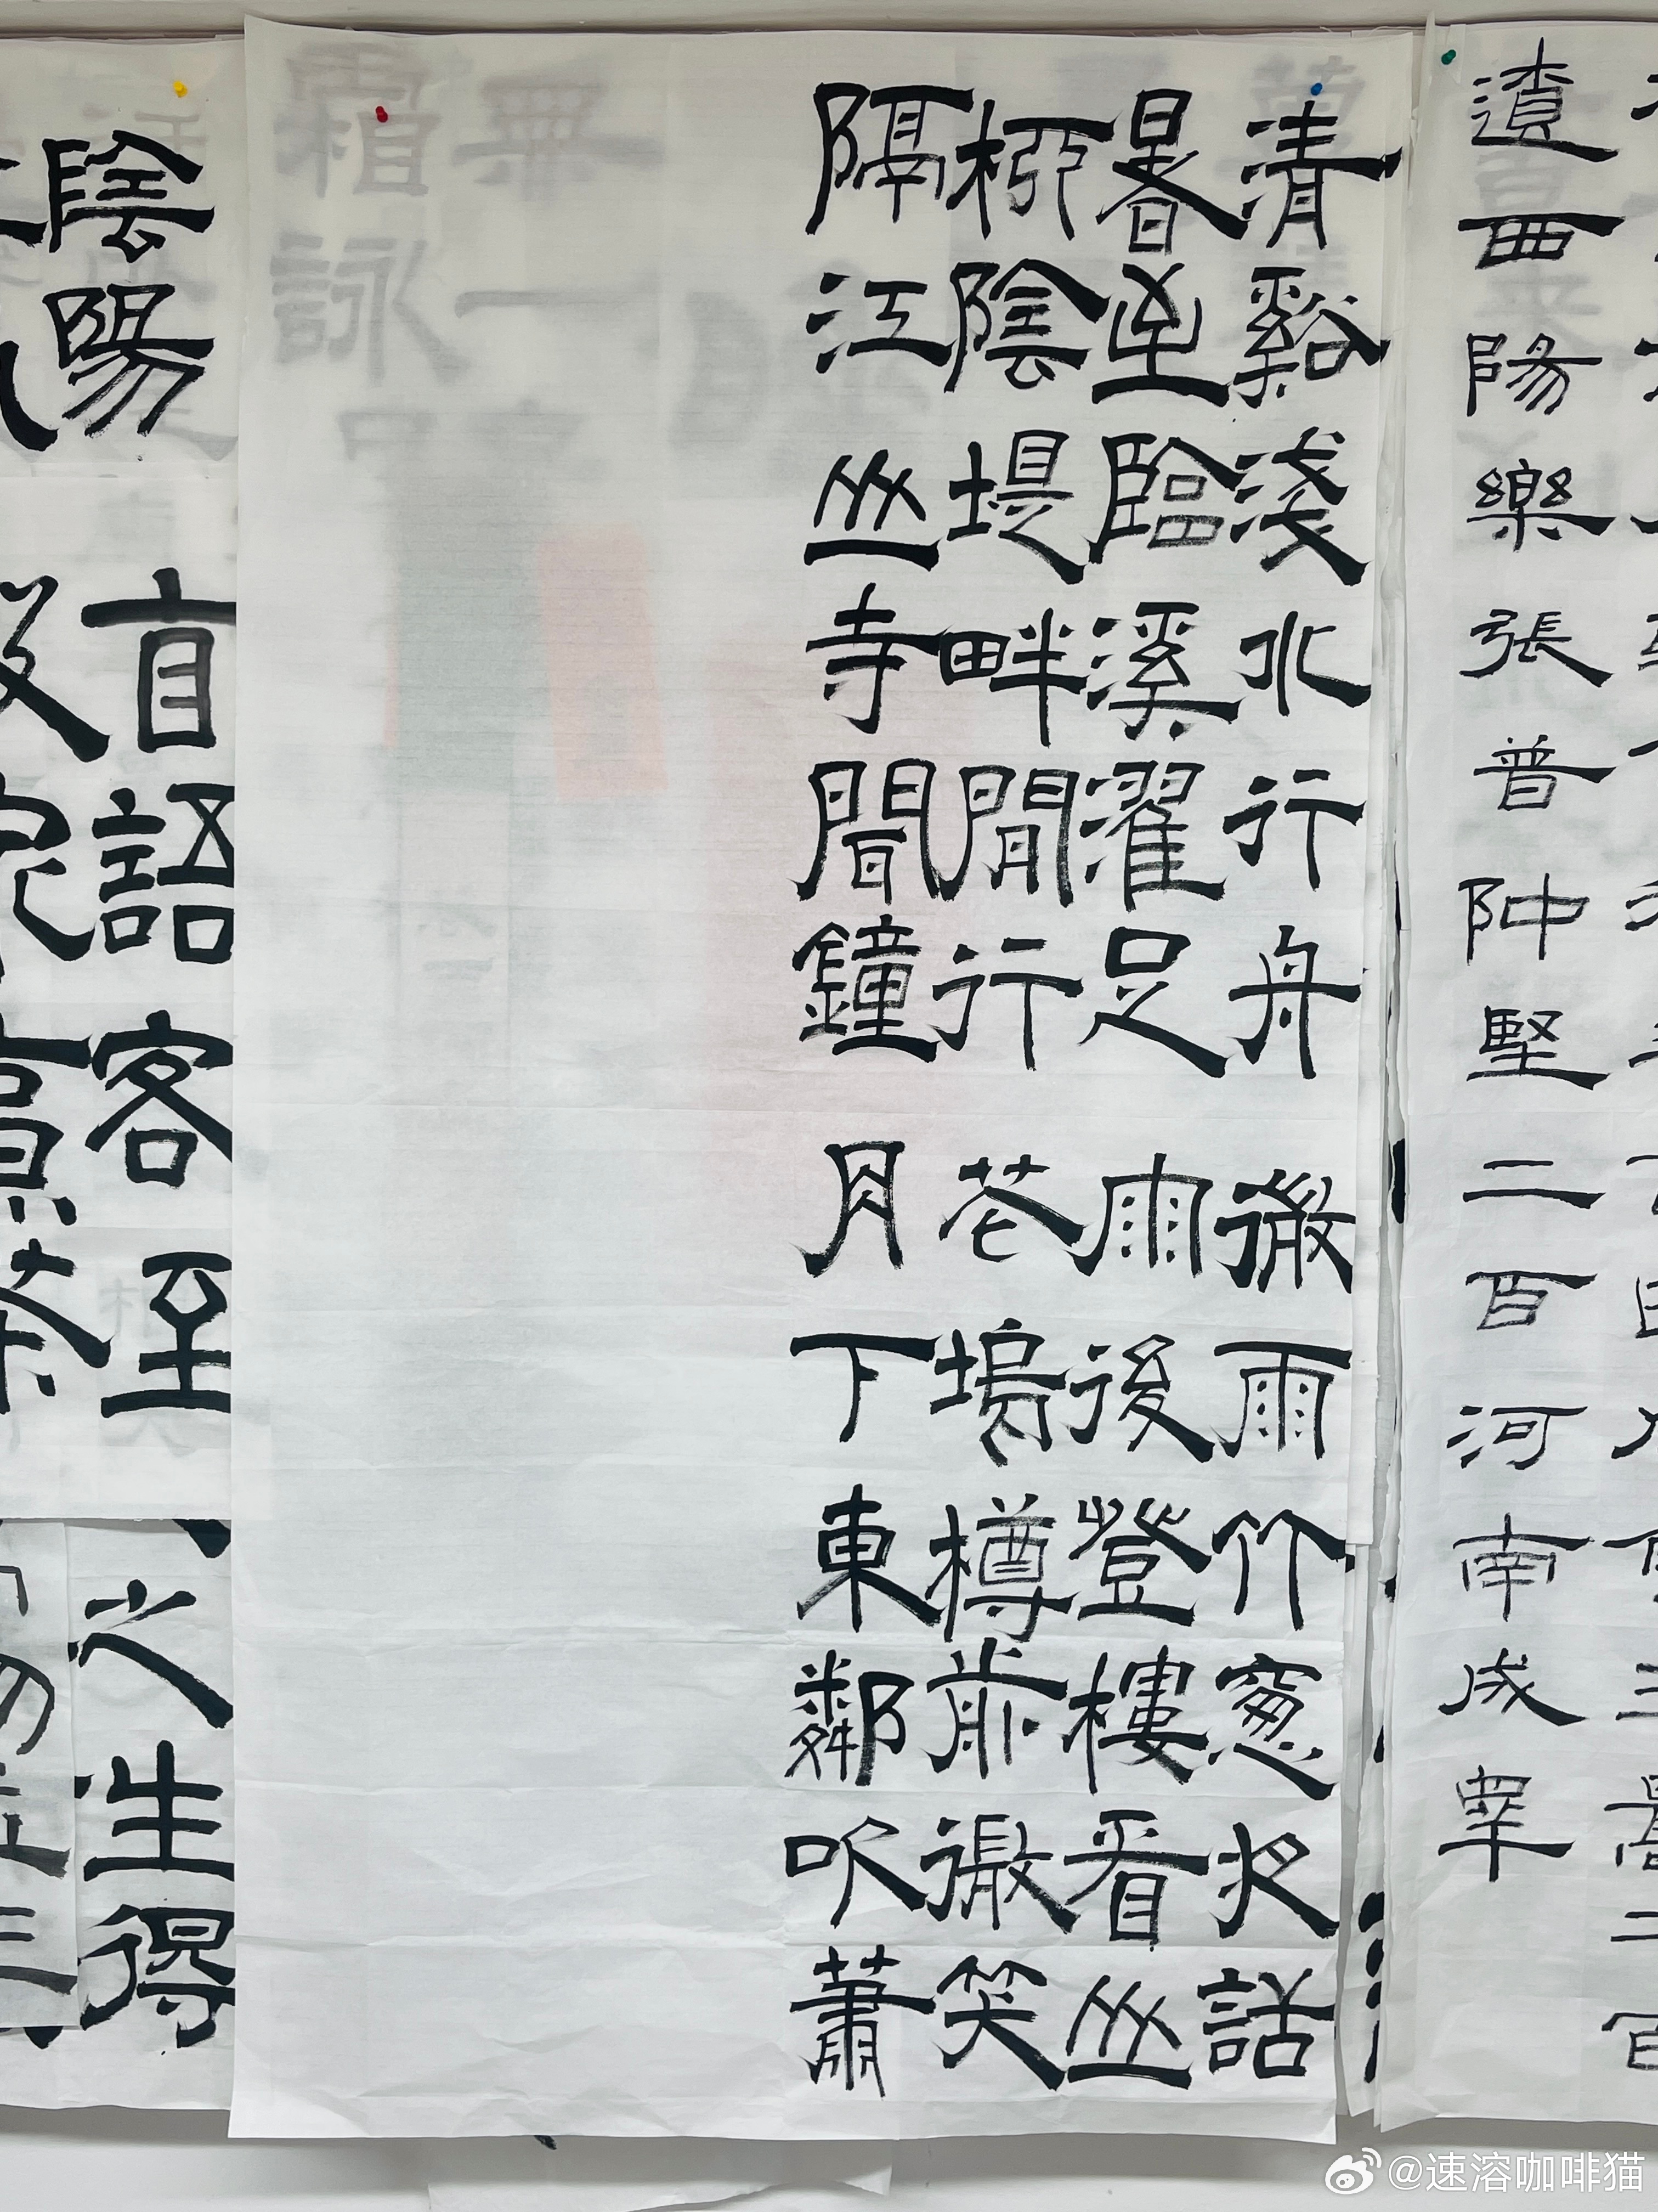 遼西陽樂張普仲堅二百河南成睪
清谿淺水行舟 微雨竹窻夜話
暑至臨溪濯足 雨後登樓看山
柳陰堤畔閒行 花塢樽前微笑
隔江山寺聞鐘 月下東鄰吹蕭
陰陽
盲語客至
之生得
@速溶咖啡猫